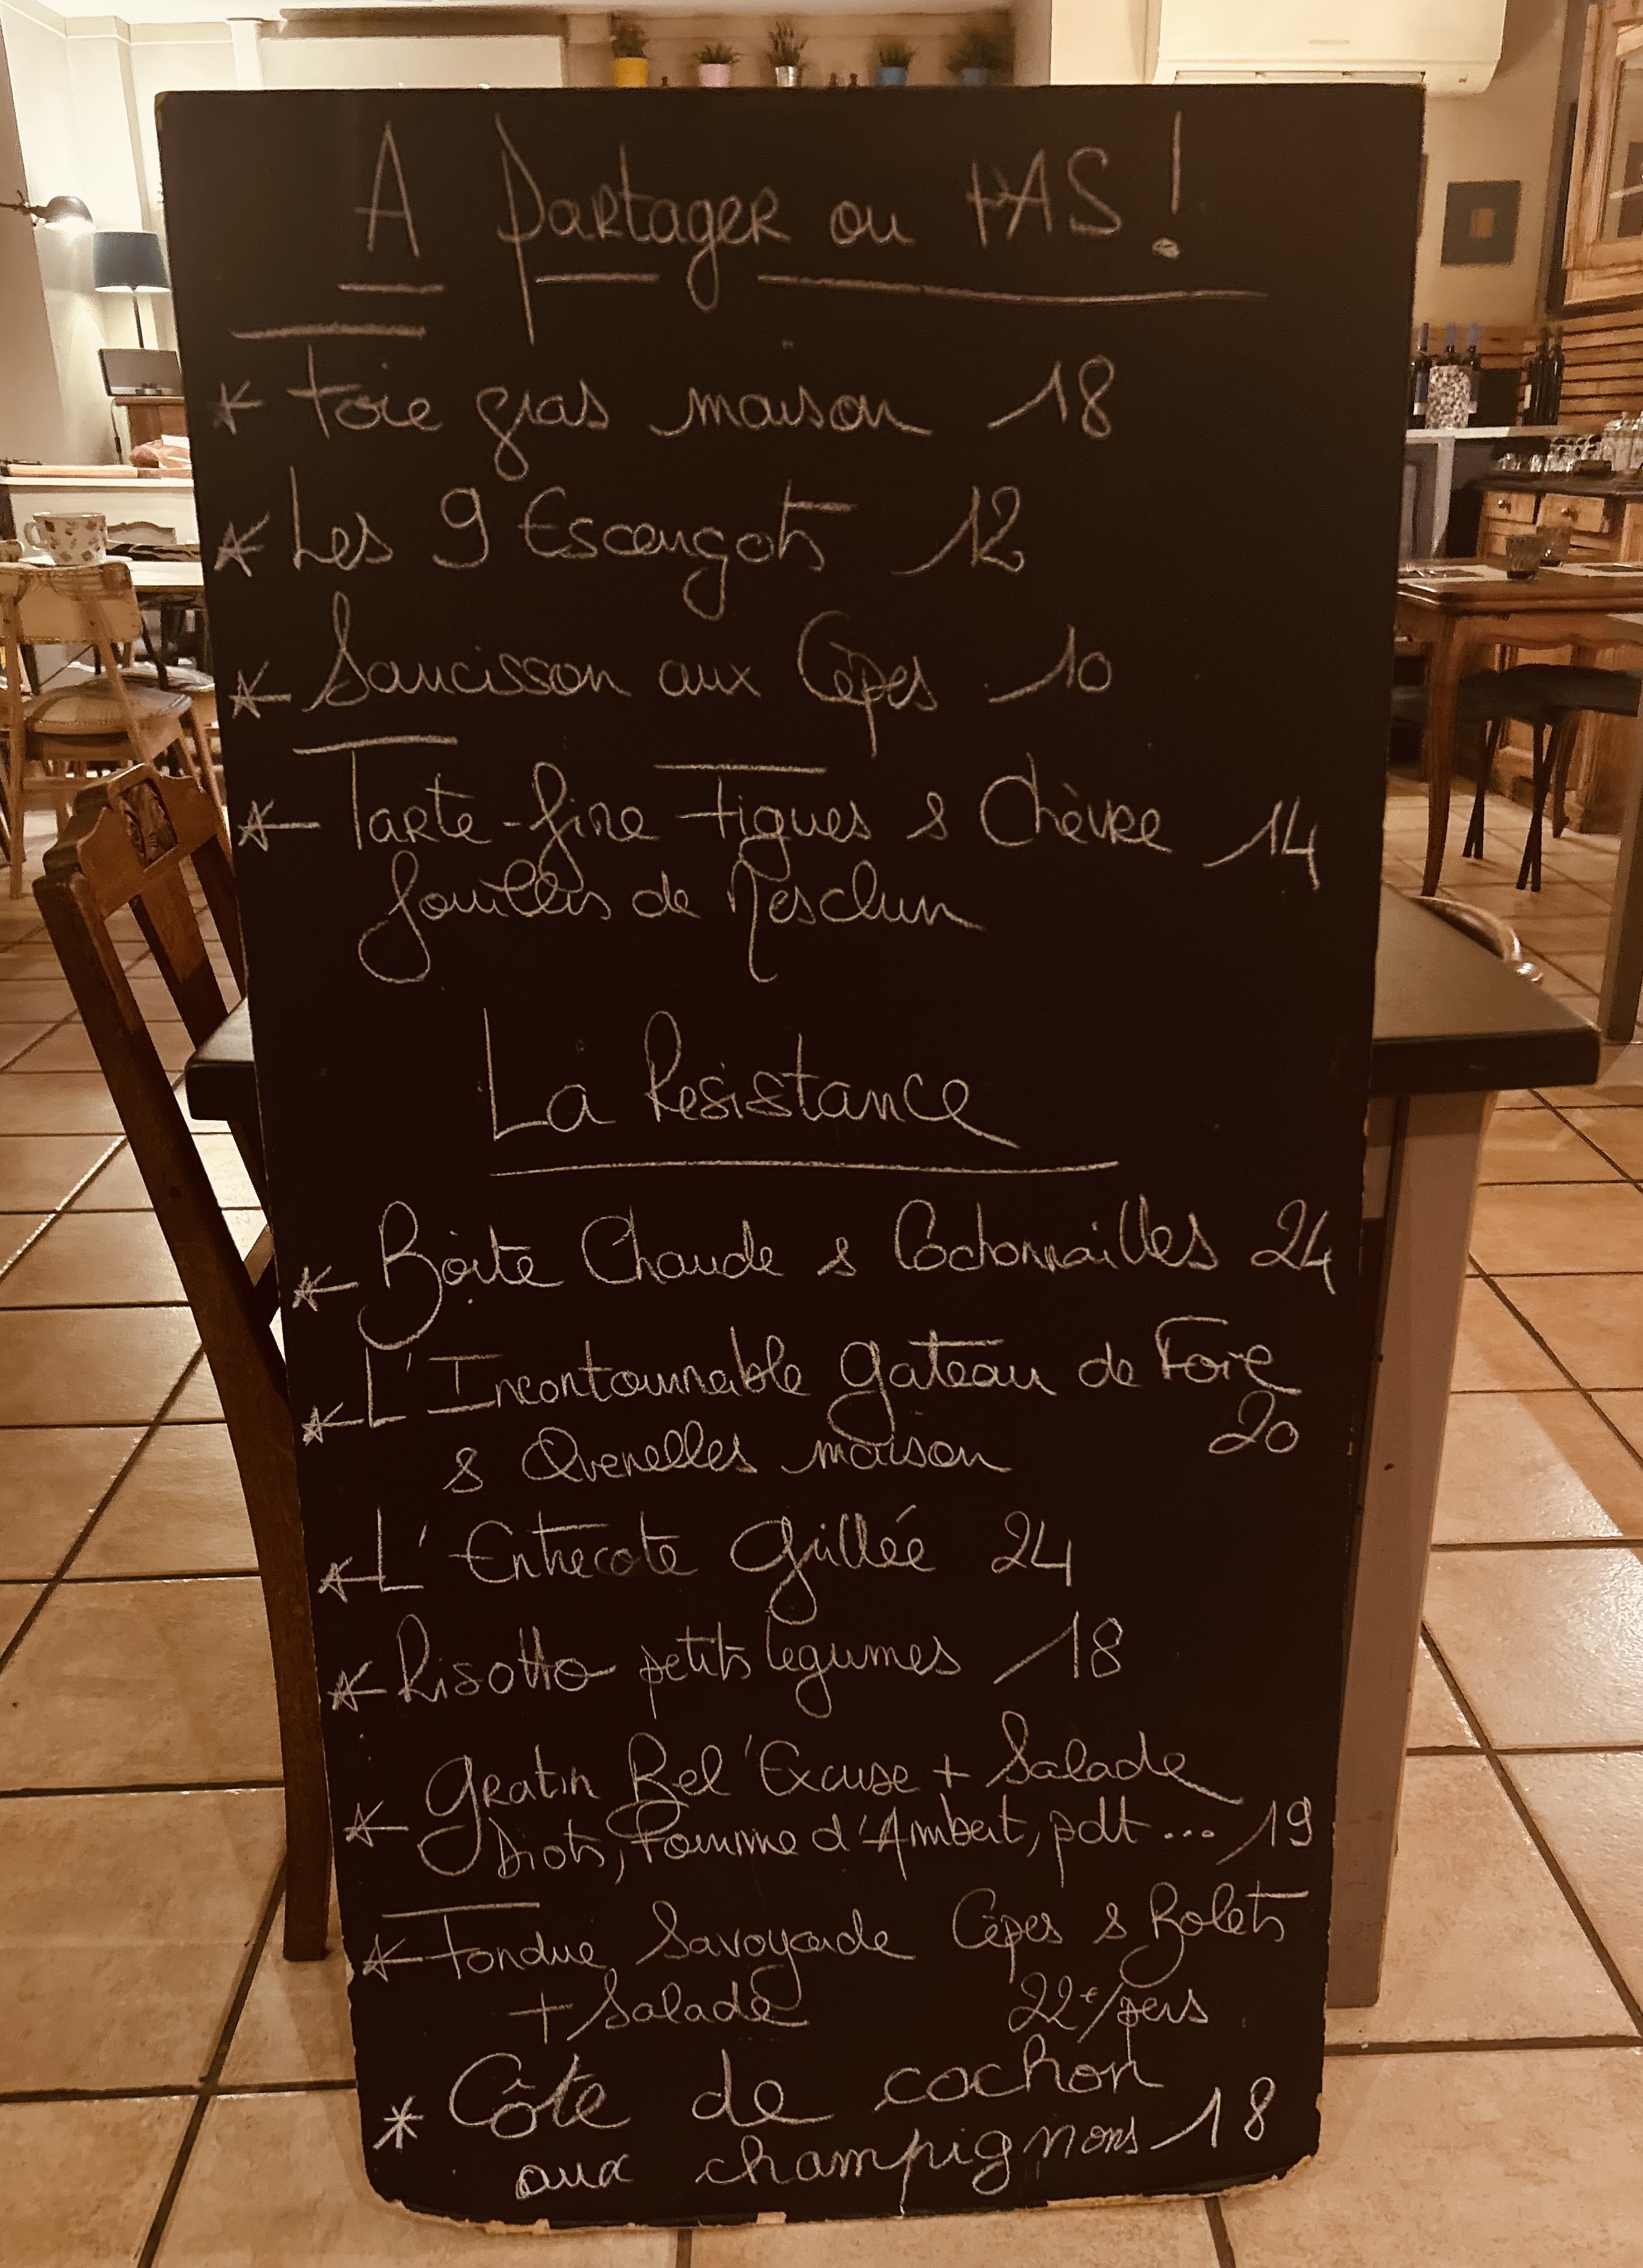 A Partager ou PAS !
* Foie gras maison 18
* Les 9 Escargots 12
* Saucisson aux Cèpes 10
* Tarte-fine Figues & Chèvre 14
fouillis de Mesclun
La Resistance
* Boîte Chaude & Cochonnailles 24
* L'Incontournable gateau de Foie
& Quenelles maison 20
* L'Entrecote Grillée 24
* Risotto petits legumes 18
* Gratin Bel'Excuse + Salade
Diots, Fourme d'Ambert, pdt ... 19
* Fondue Savoyarde Cèpes & Bolets
+ Salade 22€/pers
* Côte de cochon
aux champignons 18